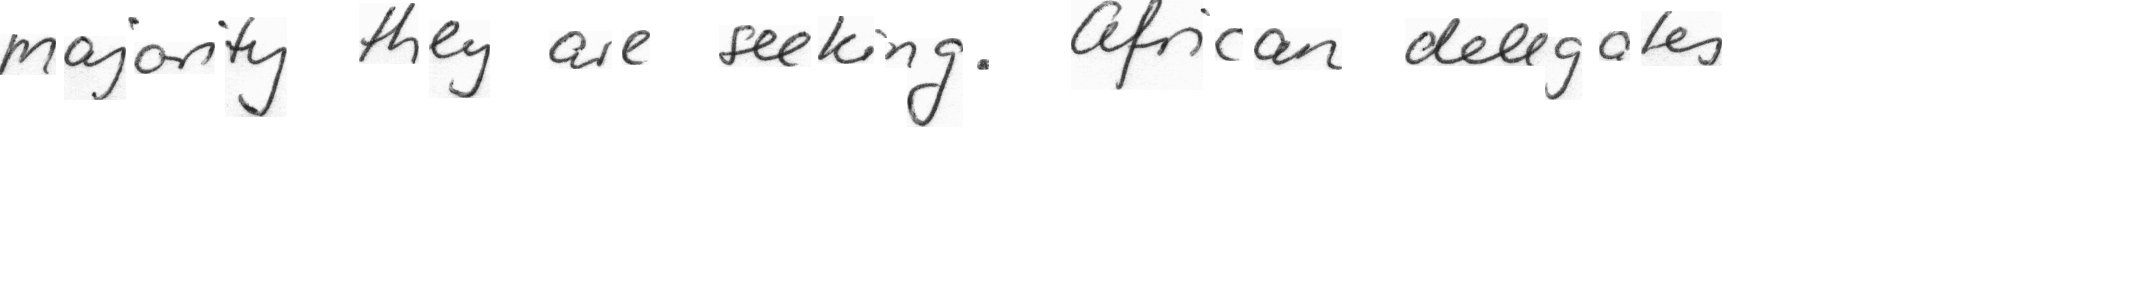 majority they are seeking. African delegates